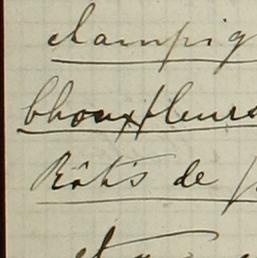 champig
Chouxfleurs
Rôtis de